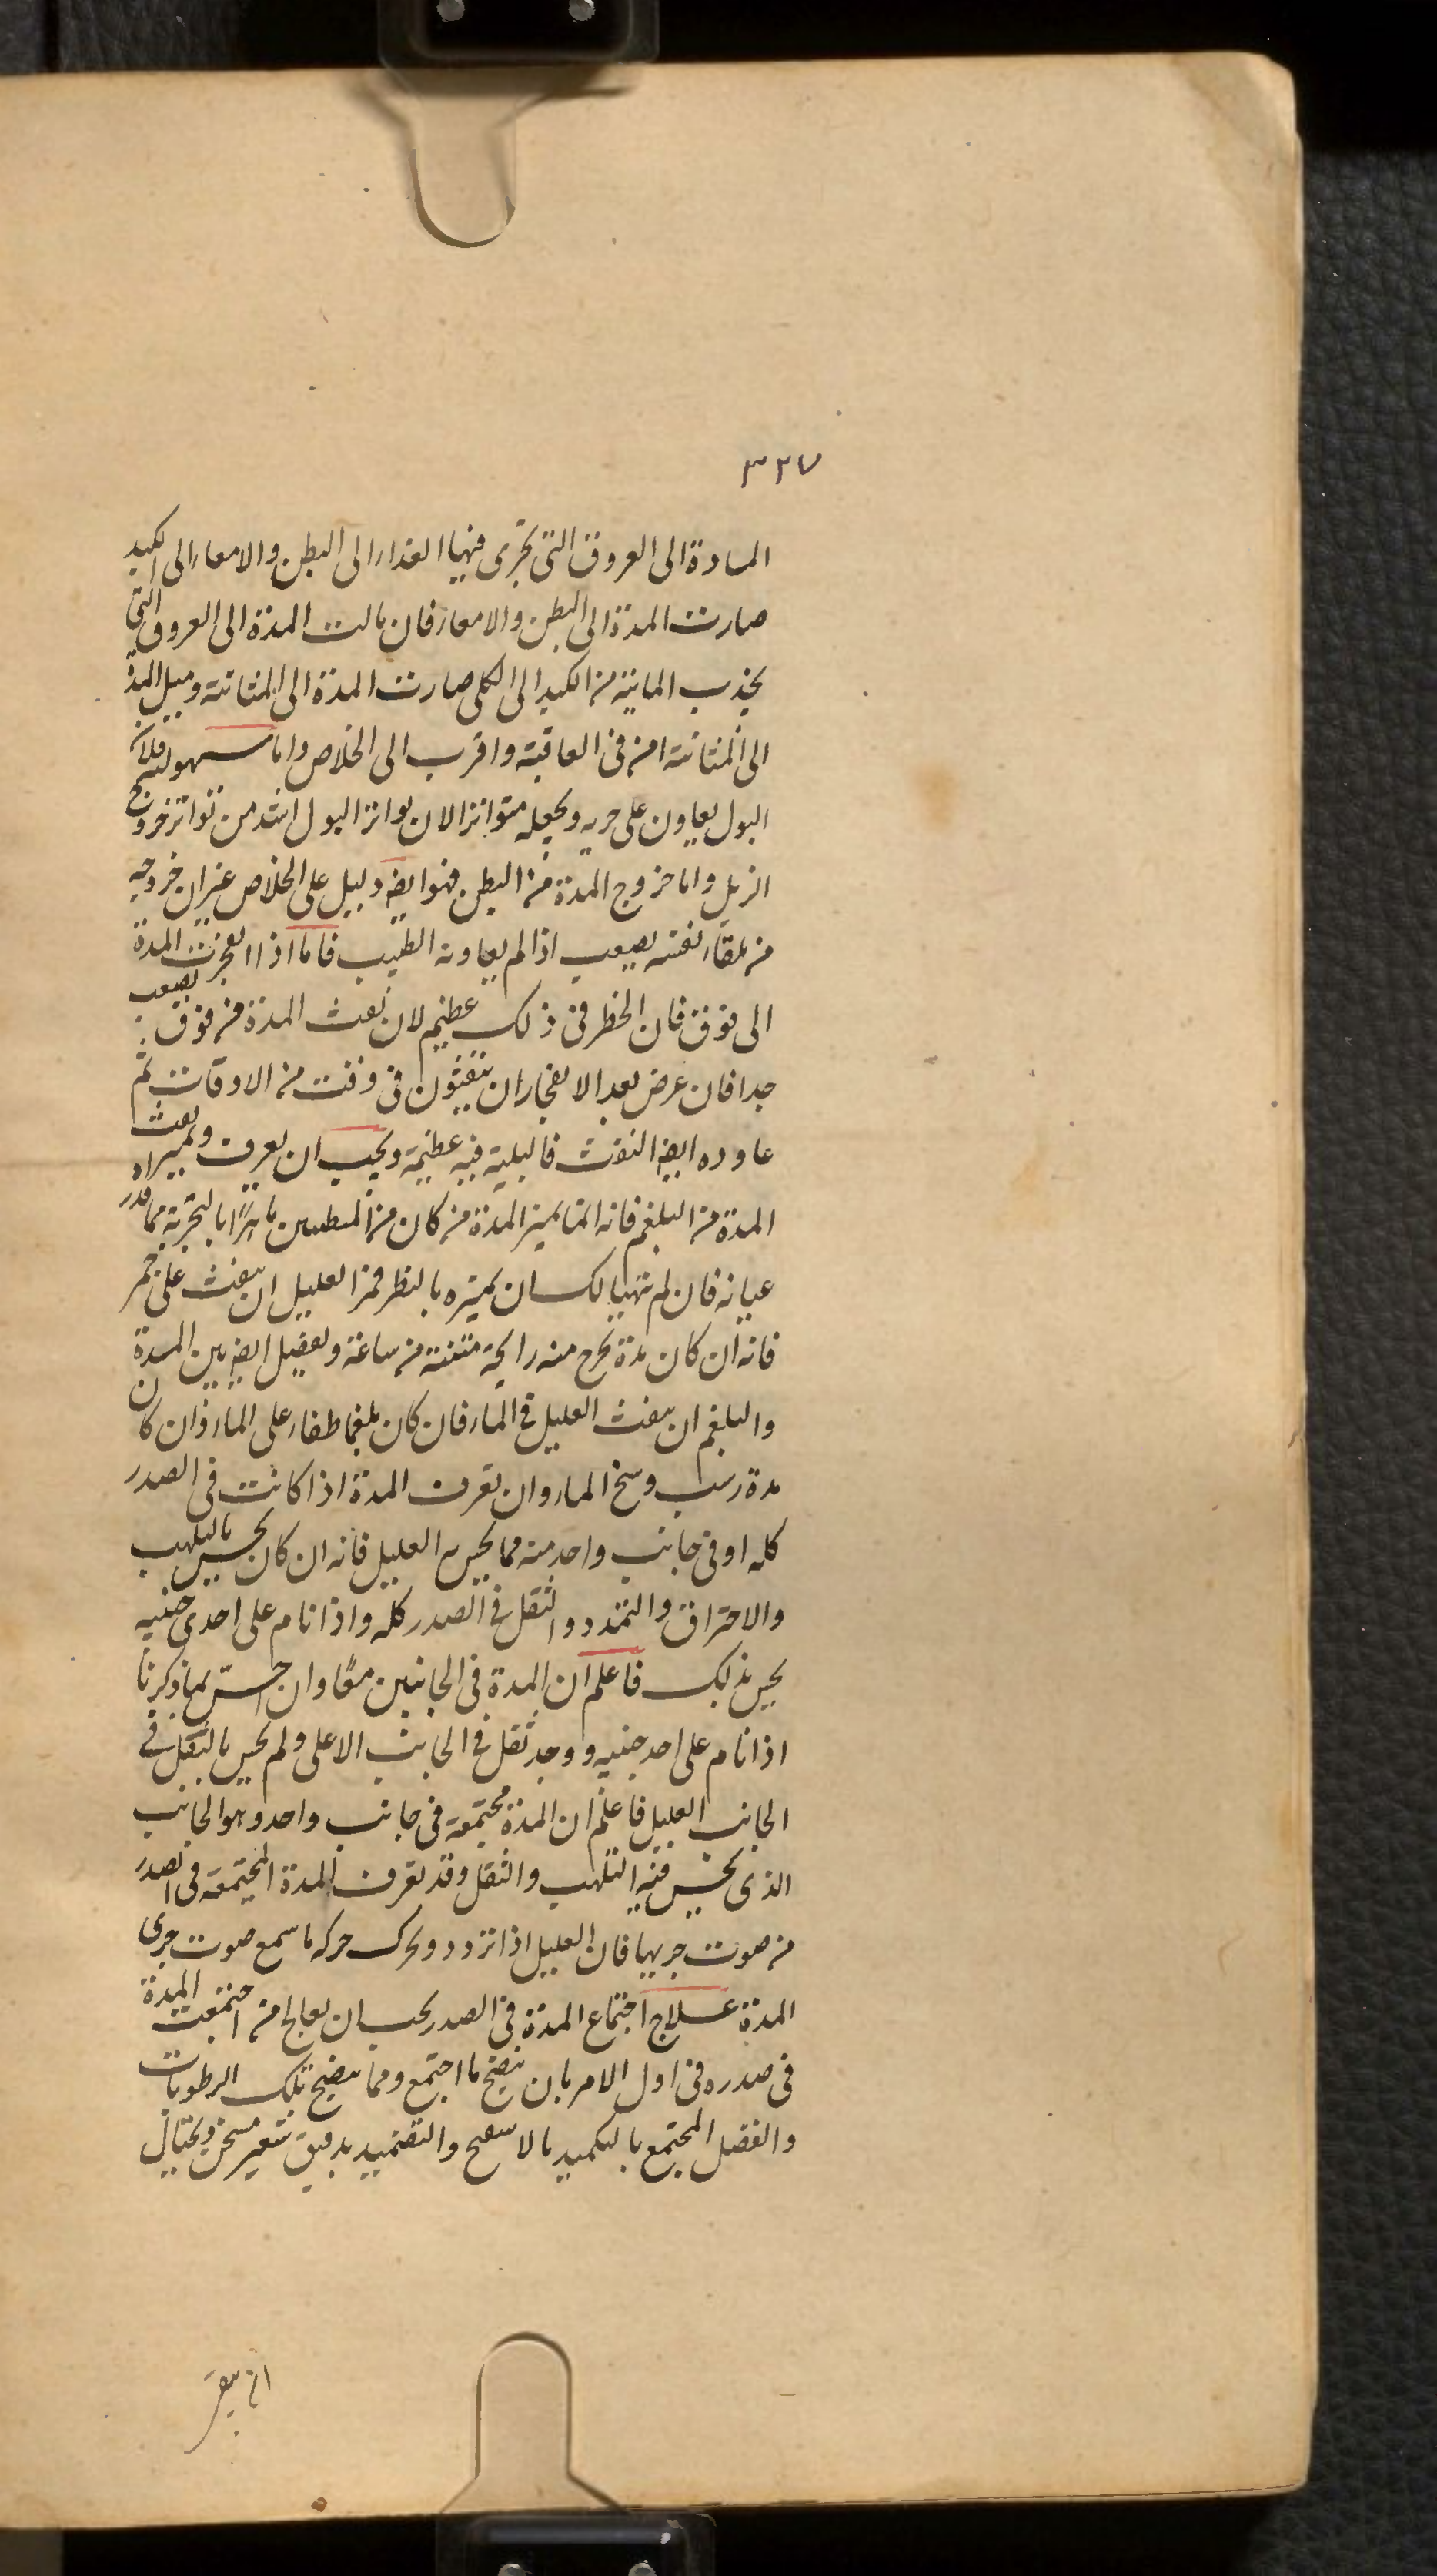 ٣٢٧
المادة الى العروق التى تجرى فيها الغذاء الى البطن والامعاء الى الكبد
صارت المدة الى البطن والامعاء فان مالت المدة الى العروق التى
تجذب المائية من الكبد الى الكلى صارت المدة الى المثانة وميل المدة
الى المثانة امن فى العاقبة واقرب الى الخلاص واما سهولته فلان
البول يعاون على جريه ويجعله متواترا لان تواتر البول اشد من تواتر خروج
الزبل واما خروج المدة من البطن فهو ايضا دليل على الخلاص غير ان خروجه
من تلقاء نفسه يصعب اذا لم يعاونه الطبيب فاما اذا انفجرت المدة
الى فوق فان الخطر فى ذلك عظيم لان نفث المدة من فوق يصعب
جدا فان عرض بعد الانفجار ان ينفثون فى وقت من الاوقات ثم
عاوده ايضا النفث فالبلية فيه عظيمة ويجب ان يعرف وتمييز نفث
المدة من البلغم فانه انما يميز المدة من كان من المتطببين ماهرًا بالتجربة مما قدر اه
عيانه فان لم يتهيا لك ان تميزه بالنظر فمر العليل ان ينفث على جمر
فانه ان كان مدة يخرج منه رايحة منتنة من ساعته ويفصل ايضا بين المدة
والبلغم ان ينفث العليل فى الماء فان كان بلغما طفا على الماء وان كان
مدة رسب وسخ الماء وان تعرف المدة اذا كانت فى الصدر
كله او فى جانب واحد منه مما يحس العليل فانه ان كان يحس بالتلهب
والاحتراق والتمدد والثقل فى الصدر كله واذا نام على احدى جنبيه
يحس بذلك فاعلم ان المدة فى الجانبين معًا وان احسّ بما ذكرنا
اذا نام على احد جنبيه ووجد ثقل فى الجانب الاعلى ولم يحس بالثقل فى
الجانب العليل فاعلم ان المدة مجتمعة فى جانب واحد وهو الجانب
الذى يحس فيه التلهب والثقل وقد تعرف المدة المجتمعة فى الصدر
من صوت جريها فان العليل اذا تردد وتحرك حركة ما سمع صوت جرى
المدة علاج اجتماع المدة فى الصدر يجب ان يعالج من اجتمعت المدة
فى صدره فى اول الامر بان ينضج ما اجتمع ومما ينضج تلك الرطوبات
والفضل المجتمع بالتكميد بالاسفنج والتضميد بدقيق شعير مسخن ويحتال